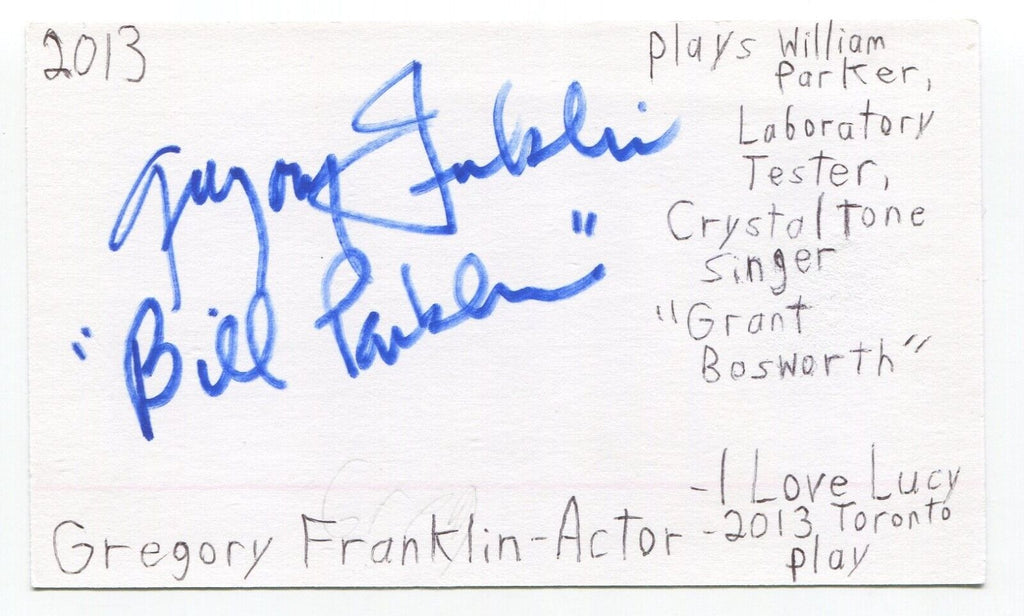 2013
Gregory Franklin
"Bill Parker"
plays William
Parker,
Laboratory
Tester,
Crystal Tone
Singer
"Grant
Bosworth"
Gregory Franklin-Actor
-I Love Lucy
-2013 Toronto
play